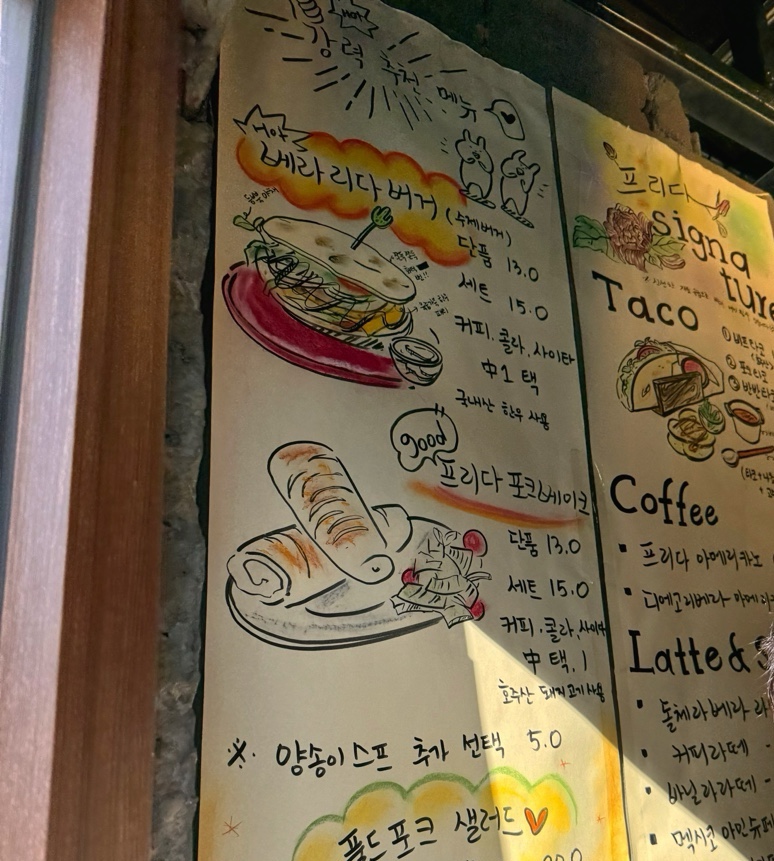 강력 추천 메뉴
베라 리다 버거 (수제버거)
단품 13.0
세트 15.0
커피, 콜라, 사이다
中 1 택
국내산 한우 사용
good
프리다 포크베이크
단품 13.0
세트 15.0
커피, 콜라, 사이다
中 택. 1
호주산 돼지고기 사용
※. 양송이 스프 추가 선택 5.0
풀드포크 샐러드
프리다
signa
ture
Taco
Coffee
▪ 프리다 아메리카노
▪ 디에고리베라 아메리카
Latte &
▪ 돌체라베라 라
▪ 커피라떼 -
▪ 바닐라라떼 -
▪ 멕시코 아인슈페